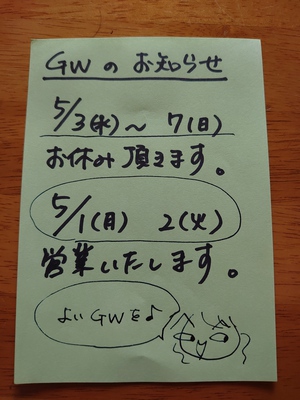 GWのお知らせ
5/3(水)～7(日)
お休み頂きます。
5/1(月) 2(火)
営業いたします。
よいGWを♪